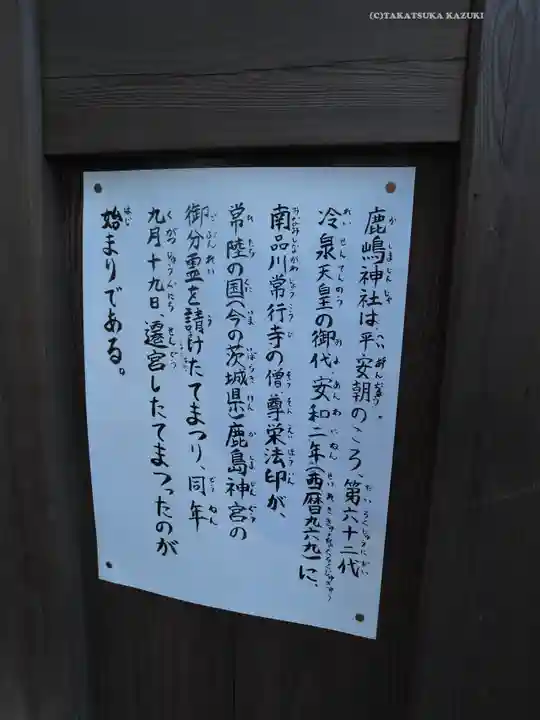 (C)TAKATSUKA KAZUKI
鹿嶋神社は、平安朝のころ、第六十二代
冷泉天皇の御代、安和二年(西暦九六九)に、
南品川常行寺の僧尊栄法印が、
常陸の国(今の茨城県)鹿島神宮の
御分霊を請けたてまつり、同年
九月十九日、遷宮したてまつったのが
始まりである。